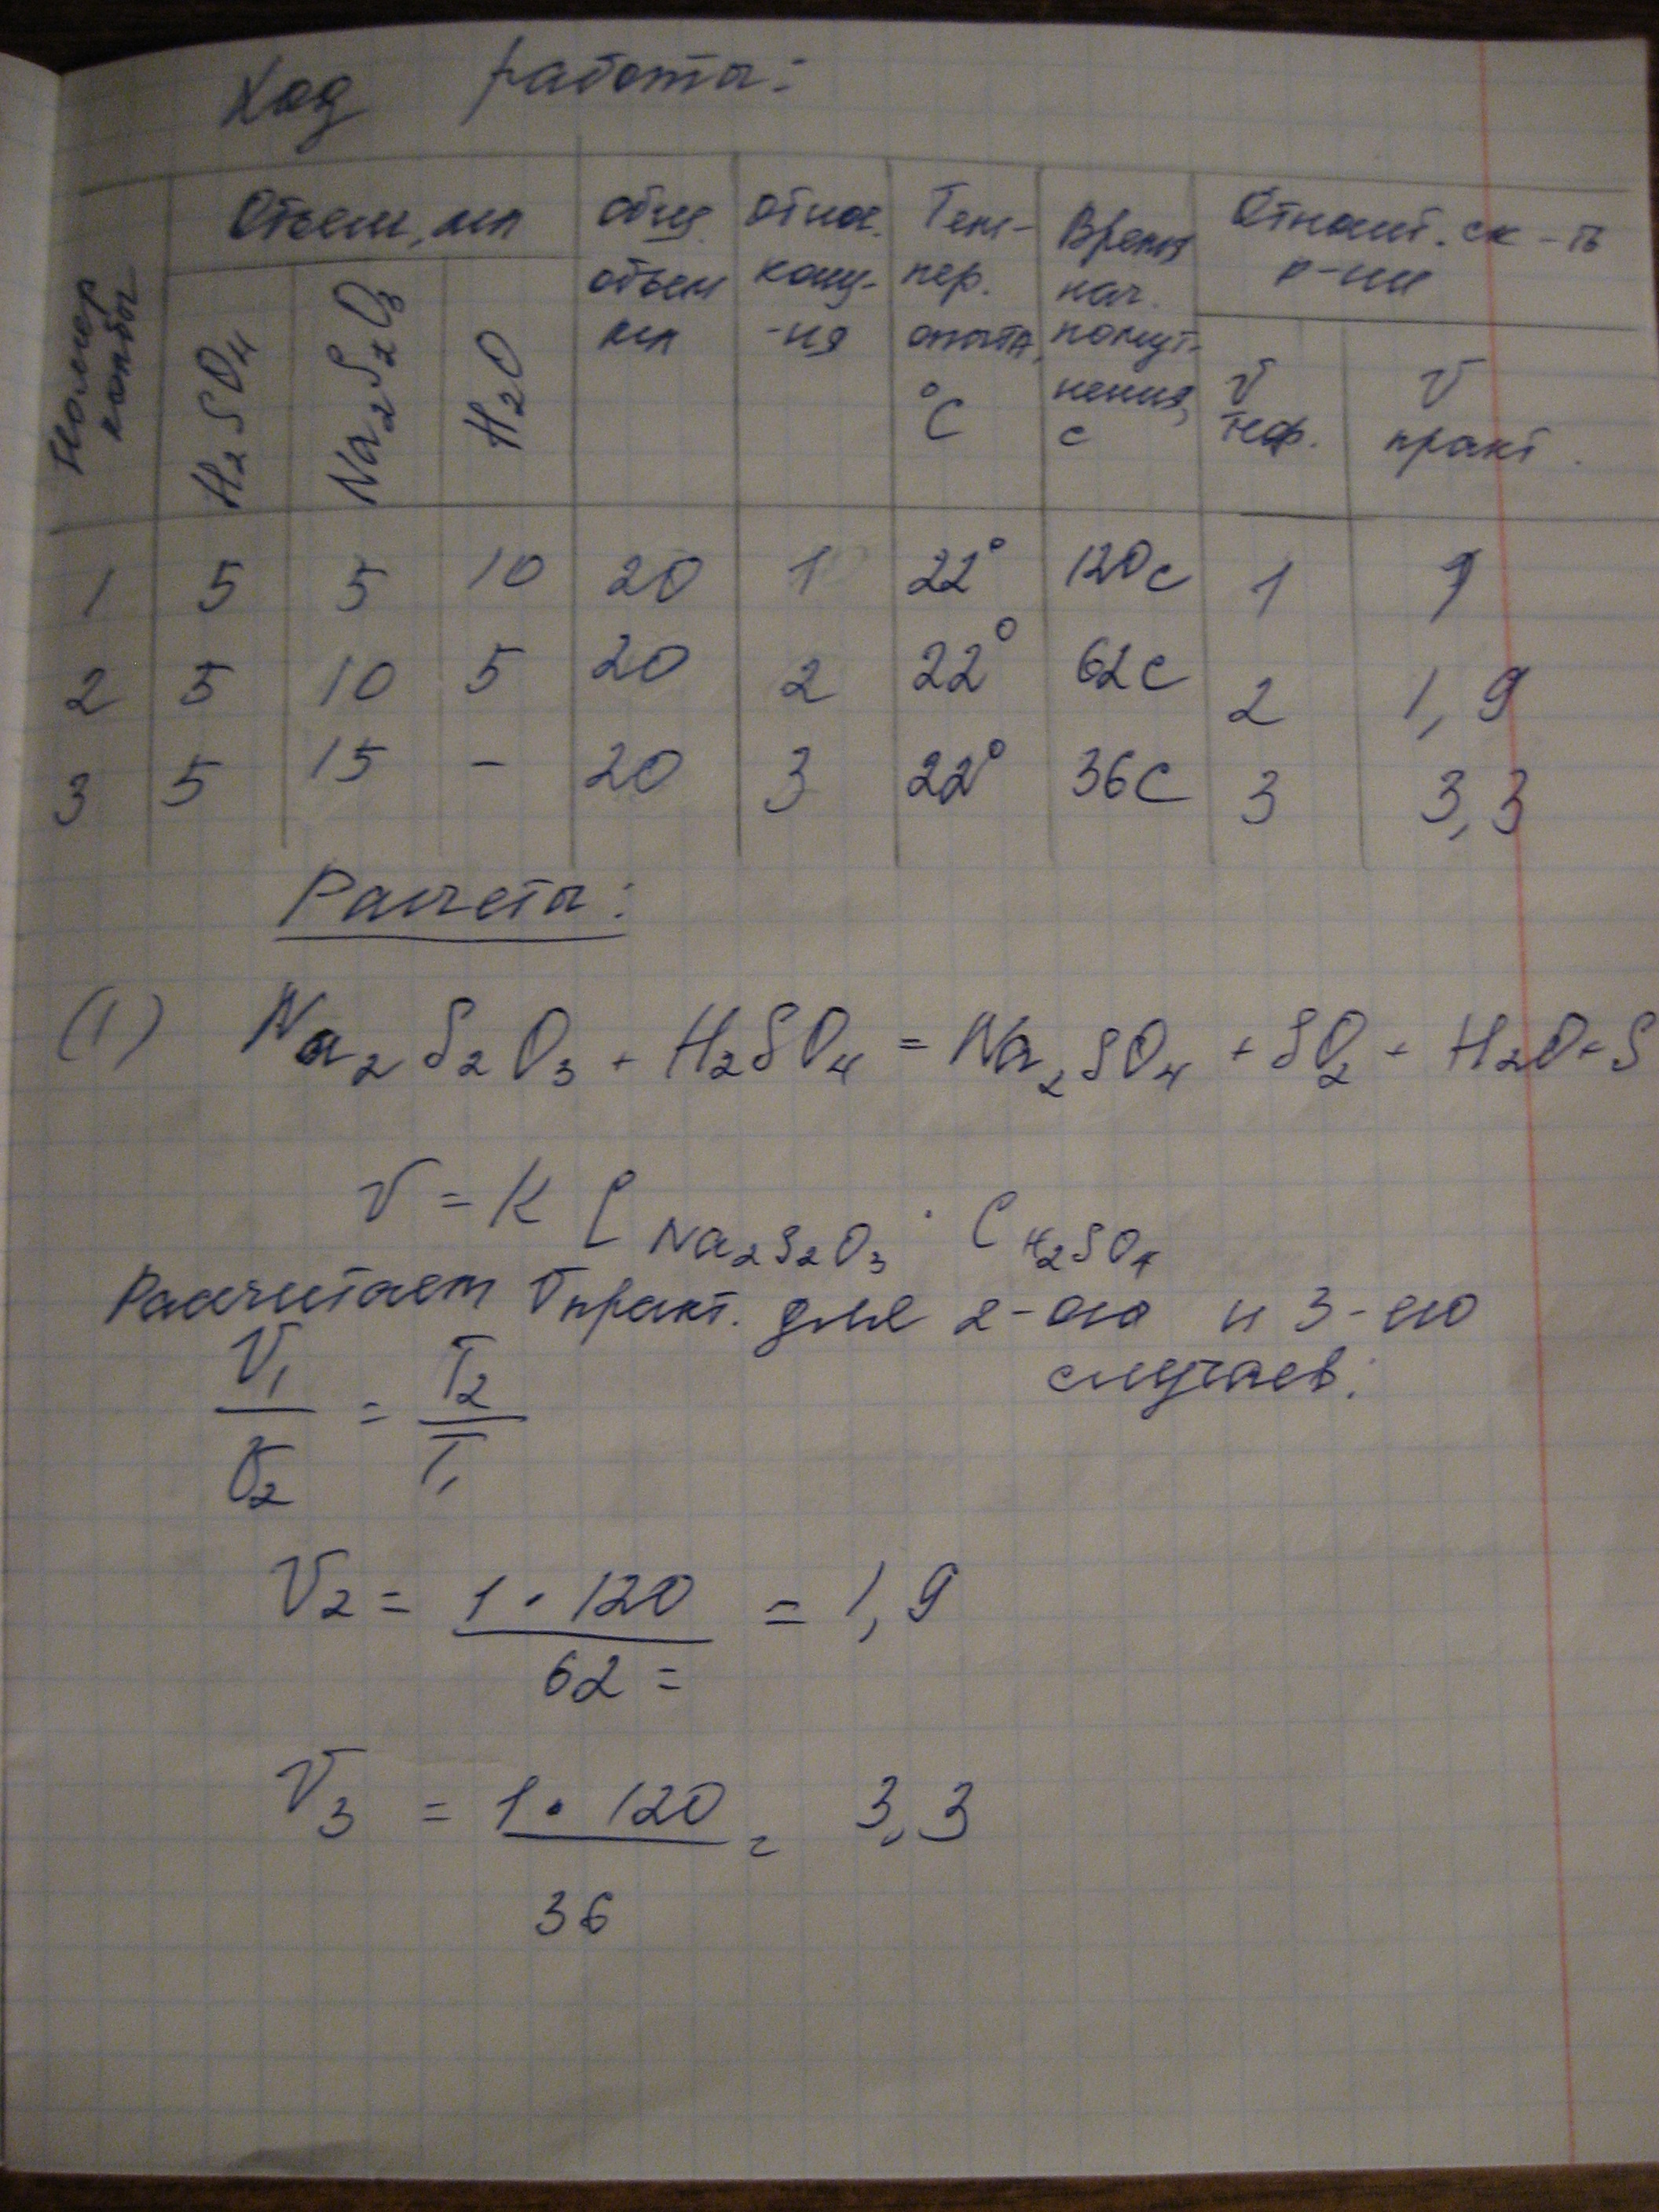 Ход работы:
Номер колбы
Объем, мл
H₂SO₄
Na₂S₂O₃
H₂O
общ. объем мл
относ. конц-ия
Темпер. опыта, °C
Время нач. помутнения, с
Относит. ск-ть р-ии
V теор.
V практ.
1 5 5 10 20 1 22° 120с 1 1
2 5 10 5 20 2 22° 62с 2 1,9
3 5 15 - 20 3 22° 36с 3 3,3
Расчеты:
(1) Na₂S₂O₃ + H₂SO₄ = Na₂SO₄ + SO₂ + H₂O + S
V = K C Na₂S₂O₃ · C H₂SO₄
Расчитаем Vпракт. для 2-ого и 3-его
случаев:
V₁/V₂ = T₂/T₁
V₂ = 1 · 120 / 62 = = 1,9
V₃ = 1 · 120 / 36 = 3,3